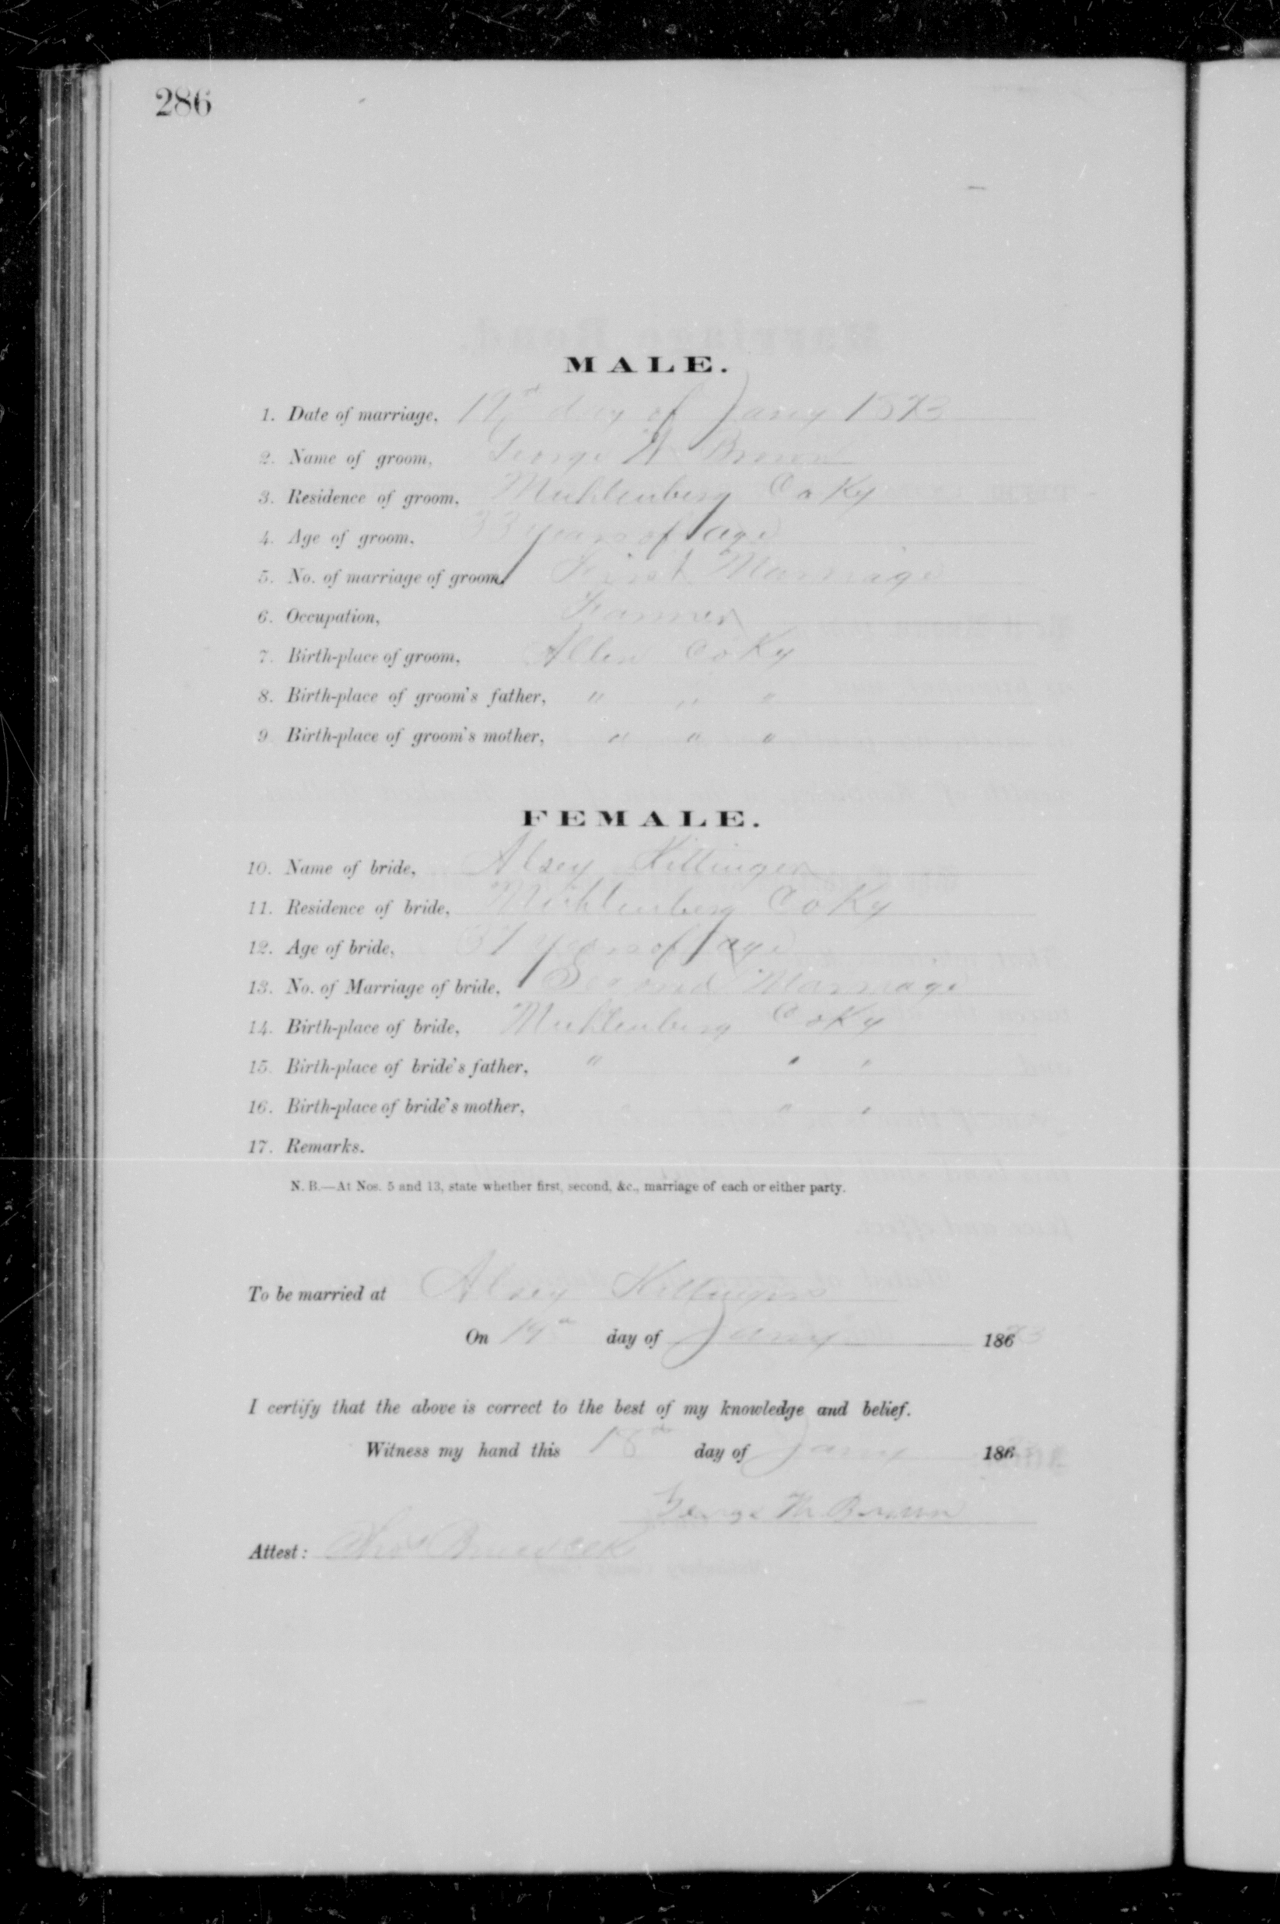 286
MALE.
1. Date of marriage, 19th day of Jany 1873
2. Name of groom, George W Brown
3. Residence of groom, Muhlenberg Co Ky
4. Age of groom, 33 years of age
5. No. of marriage of groom, First Marriage
6. Occupation, Farmer
7. Birth-place of groom, Allen Co Ky
8. Birth-place of groom's father, " " "
9. Birth-place of groom's mother, " " "
FEMALE.
10. Name of bride, Alsey Killinger
11. Residence of bride, Muhlenberg Co Ky
12. Age of bride, 37 years of age
13. No. of Marriage of bride, Second Marriage
14. Birth-place of bride, Muhlenberg Co Ky
15. Birth-place of bride's father, " " "
16. Birth-place of bride's mother, " "
17. Remarks.
N. B.—At Nos. 5 and 13, state whether first, second, &c., marriage of each or either party.
To be married at Alsey Killingers
On 19th day of Jany 1873
I certify that the above is correct to the best of my knowledge and belief.
Witness my hand this 18th day of Jany 186
George W. Brown
Attest: Thos